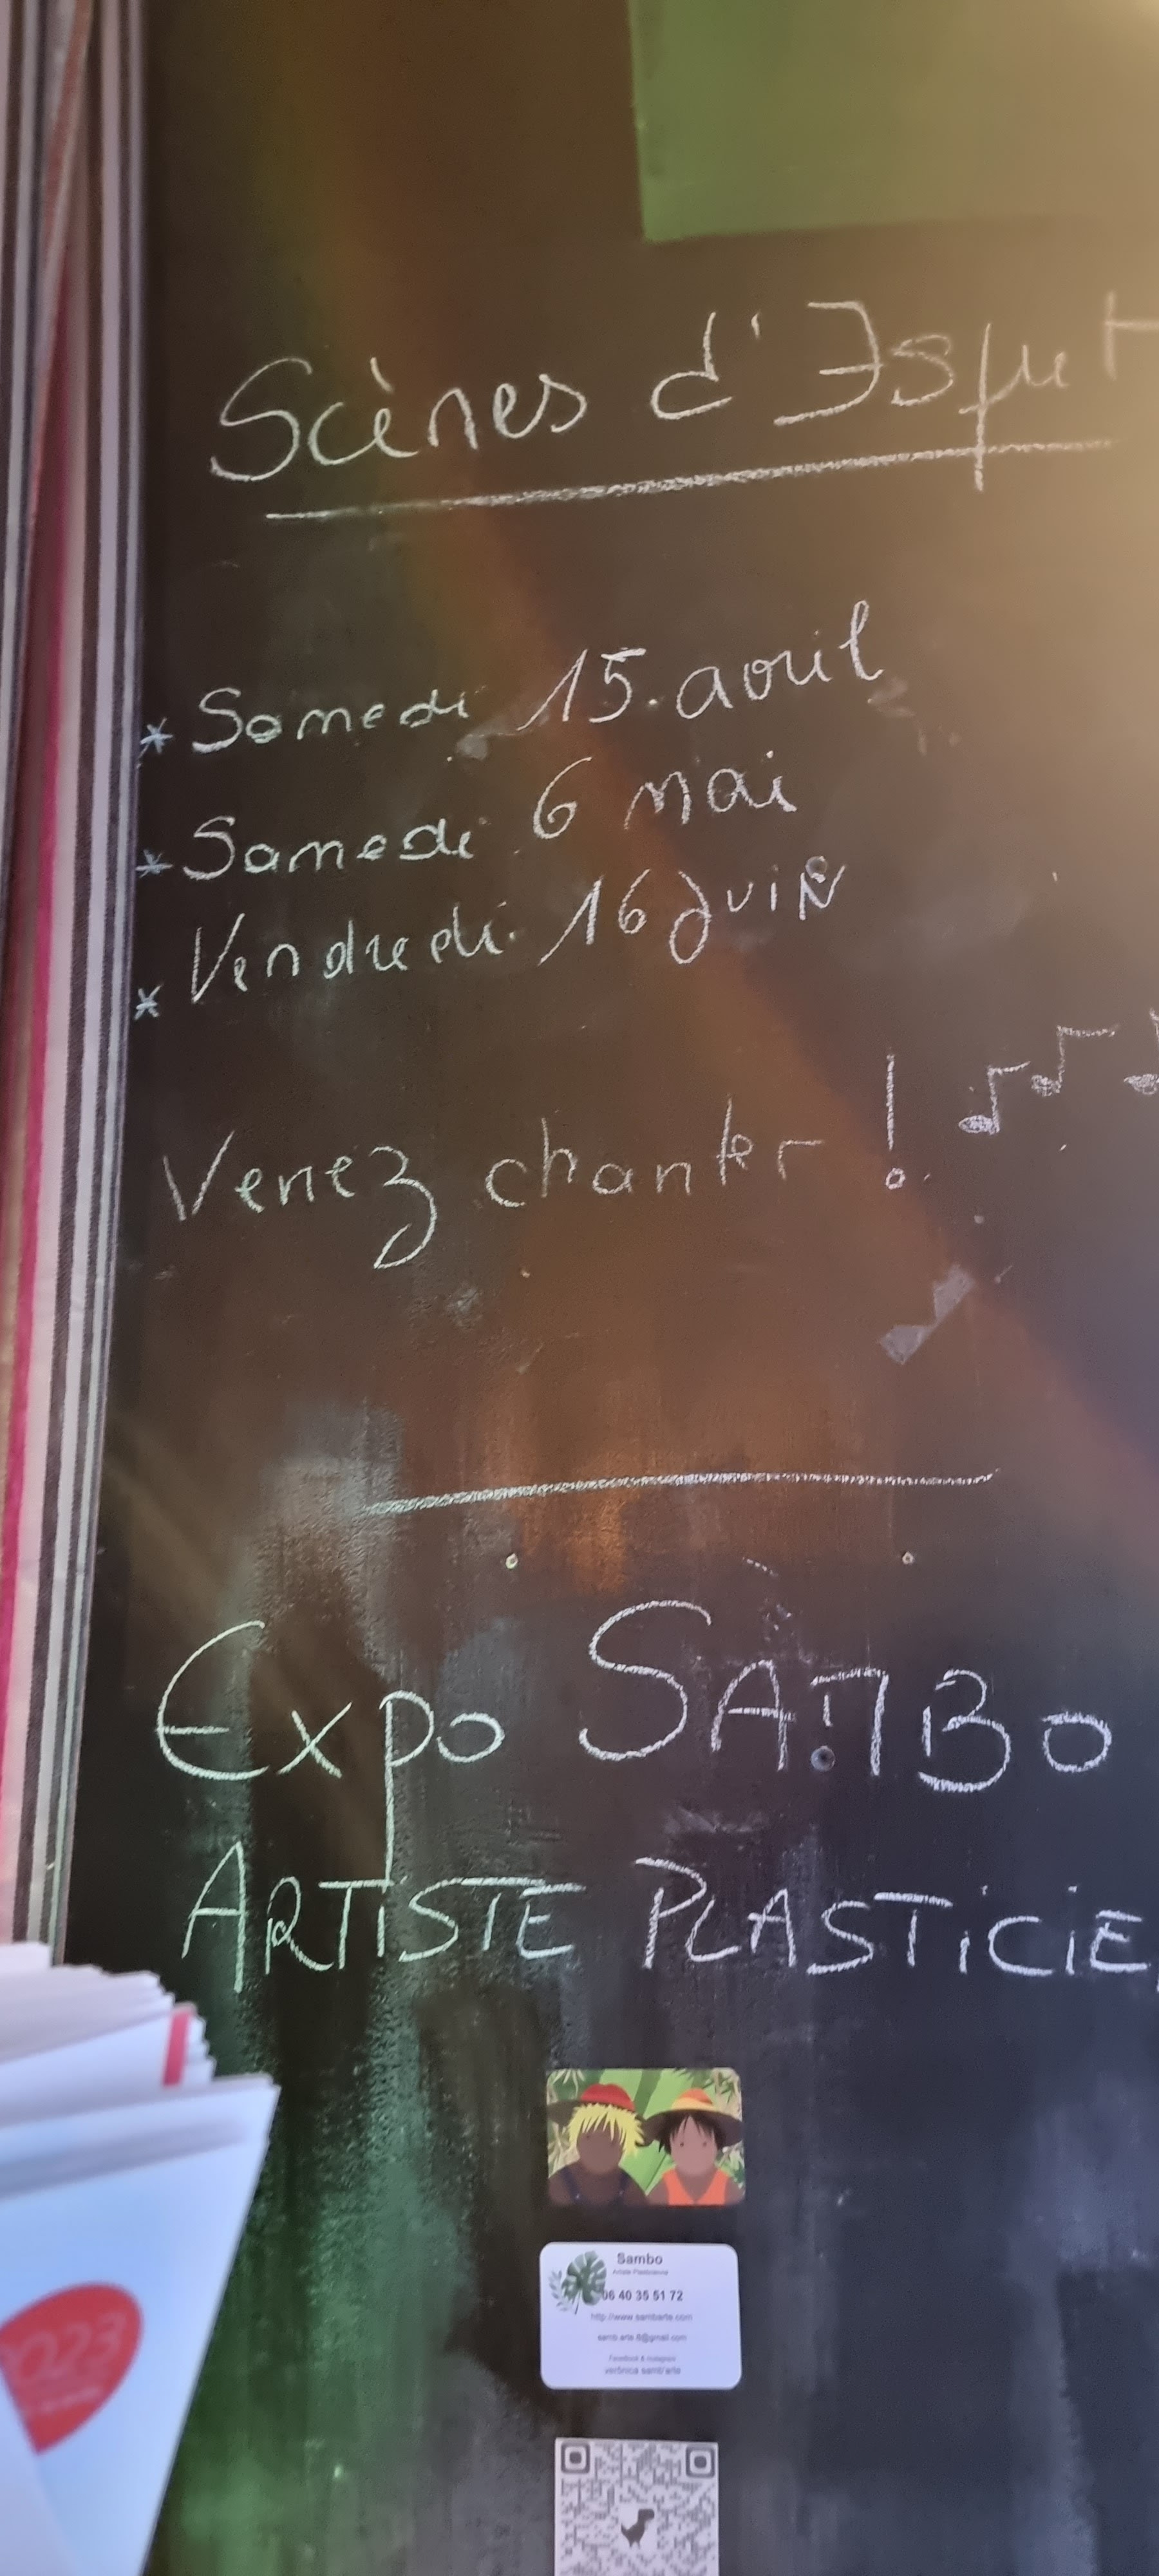 Scènes d'Esprit
* Samedi 15. avril
* Samedi 6 mai
* Vendredi 16 Juin
Venez chanter !
Expo SAMBo
ARTiSTE PLASTiCiE
Sambo
Artiste Plasticienne
06 40 35 51 72
http://www.sambarte.com
samb.arte.8@gmail.com
Facebook & Instagram
verônica samb'arte
2023